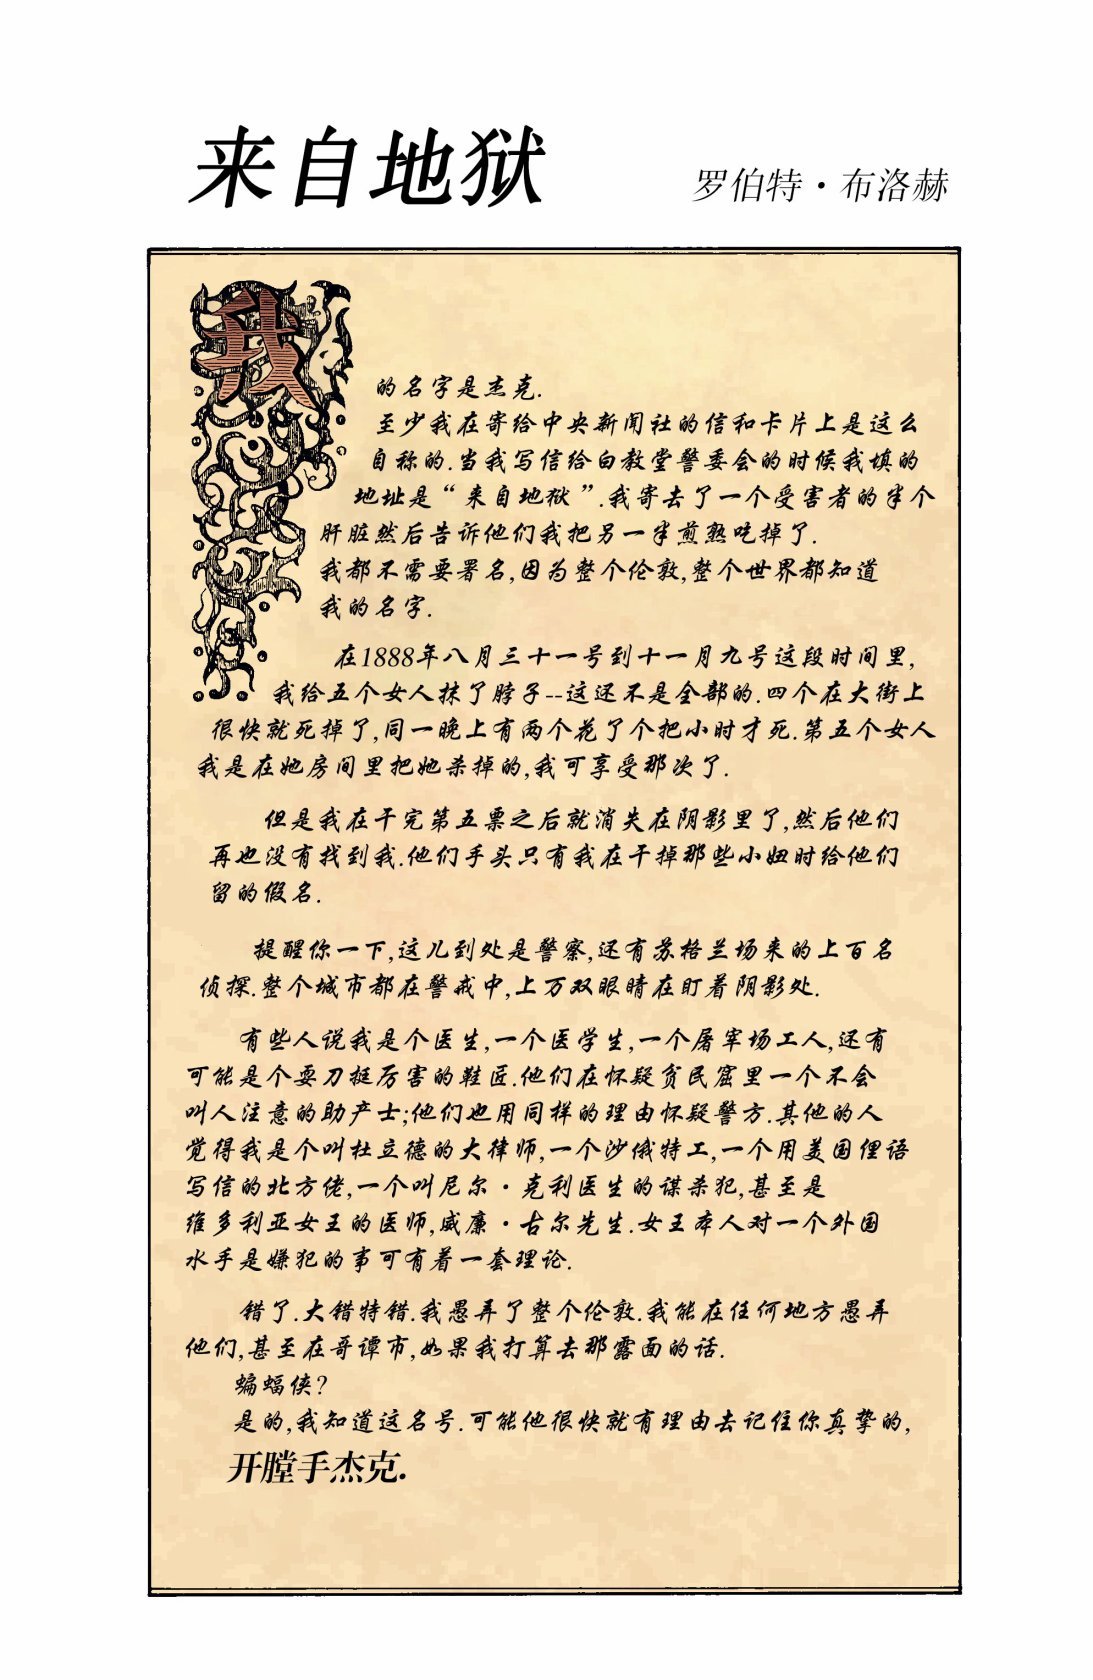 来自地狱
罗伯特·布洛赫
我
的名字是杰克.
至少我在寄给中央新闻社的信和卡片上是这么
自称的.当我写信给白教堂警委会的时候我填的
地址是“来自地狱”.我寄去了一个受害者的半个
肝脏然后告诉他们我把另一半煎熟吃掉了.
我都不需要署名,因为整个伦敦,整个世界都知道
我的名字.
在1888年八月三十一号到十一月九号这段时间里,
我给五个女人抹了脖子--这还不是全部的.四个在大街上
很快就死掉了,同一晚上有两个花了个把小时才死.第五个女人
我是在她房间里把她杀掉的,我可享受那次了.
但是我在干完第五票之后就消失在阴影里了,然后他们
再也没有找到我.他们手头只有我在干掉那些小妞时给他们
留的假名.
提醒你一下,这儿到处是警察,还有苏格兰场来的上百名
侦探.整个城市都在警戒中,上万双眼睛在盯着阴影处.
有些人说我是个医生,一个医学生,一个屠宰场工人,还有
可能是个耍刀挺厉害的鞋匠.他们在怀疑贫民窟里一个不会
叫人注意的助产士;他们也用同样的理由怀疑警方.其他的人
觉得我是个叫杜立德的大律师,一个沙俄特工,一个用美国俚语
写信的北方佬,一个叫尼尔·克利医生的谋杀犯,甚至是
维多利亚女王的医师,威廉·古尔先生.女王本人对一个外国
水手是嫌犯的事可有着一套理论.
错了.大错特错.我愚弄了整个伦敦.我能在任何地方愚弄
他们,甚至在哥谭市,如果我打算去那露面的话.
蝙蝠侠?
是的,我知道这名号.可能他很快就有理由去记住你真挚的,
开膛手杰克.